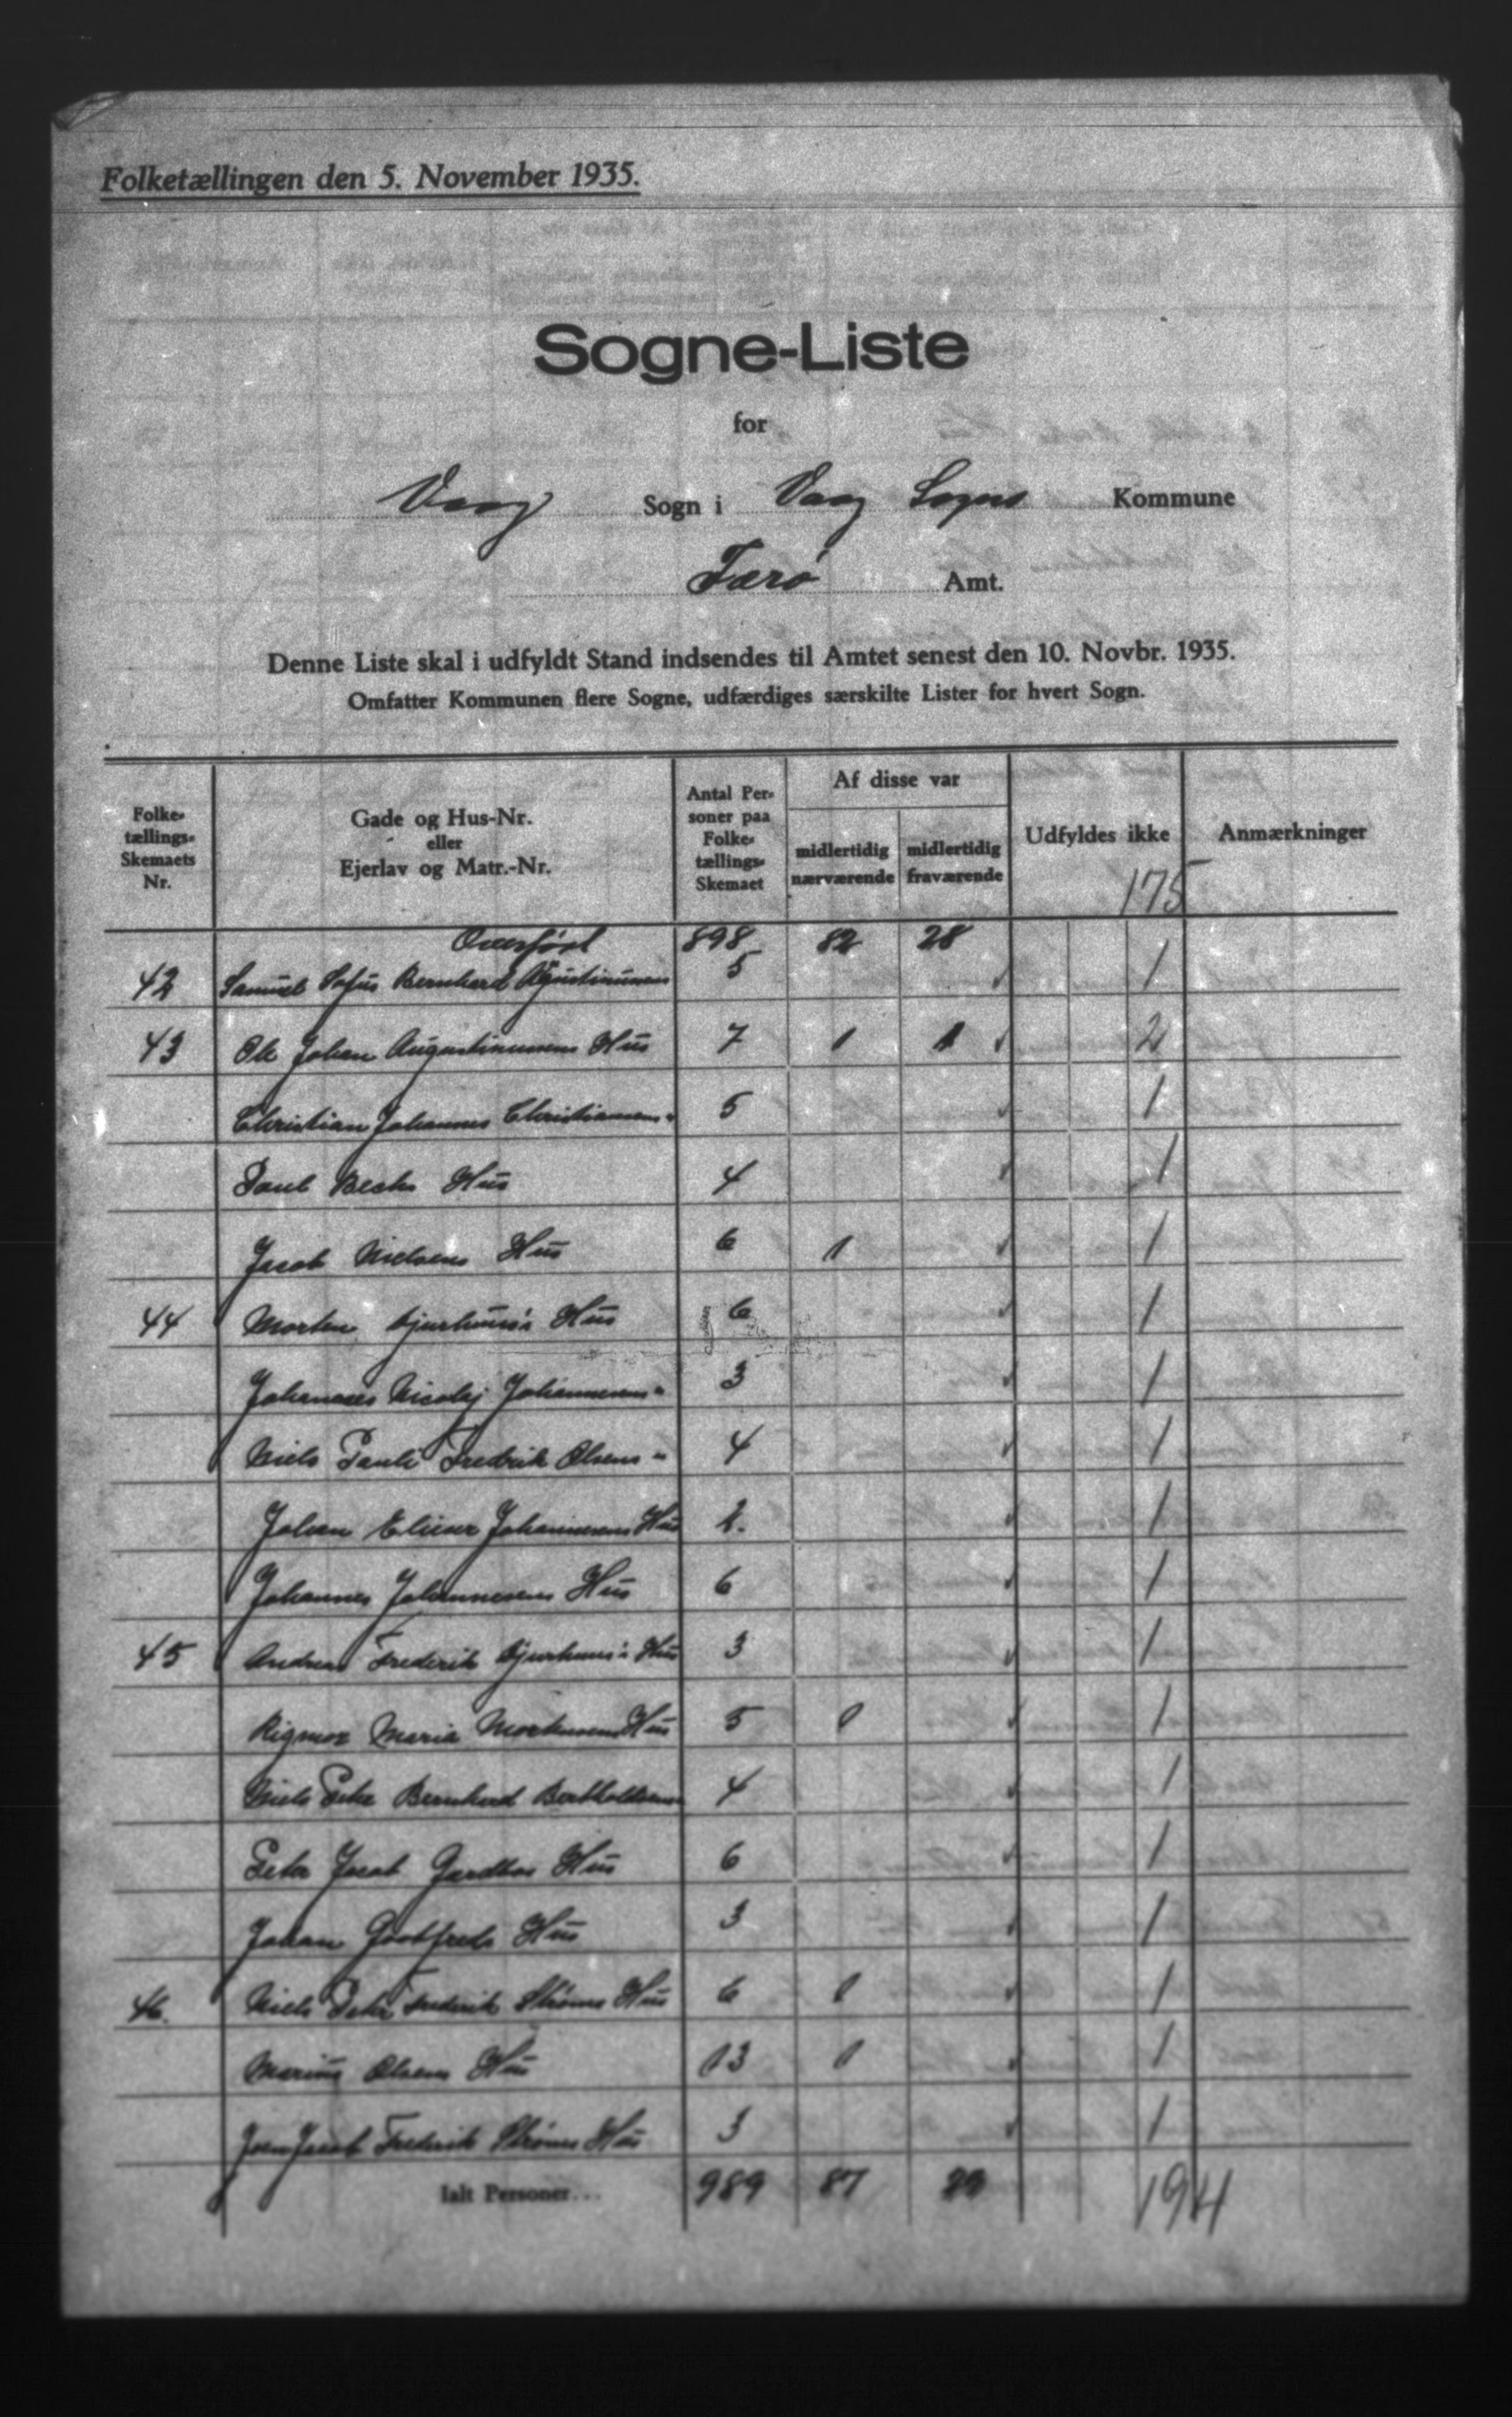 Folketællingen den 5. November 1935.
Sogne-Liste
for
Vaag Sogn i Vaag Sogns Kommune
Færø Amt.
Denne Liste skal i udfyldt Stand indsendes til Amtet senest den 10. Novbr. 1935.
Omfatter Kommunen flere Sogne, udfærdiges særskilte Lister for hvert Sogn.
Folke-tællings-Skemaets Nr. Gade og Hus-Nr. eller Ejerlav og Matr.-Nr. Antal Personer paa Folke-tællings-Skemaet Af disse var midlertidig nærværende midlertidig fraværende Udfyldes ikke Anmærkninger
175
Overført 898 82 28
42 Samuel Sofus Bernhard 5 1
43 Ole Johan Augustinussens Hus 7 1 1 2
Christian Johannes Christiansens " 5 1
Paul Becks Hus 4 1
Jacob Nielsens Hus 6 1 1
44 Morten Djurhuus's Hus 6 1
Johannes Nicolaj Johannesens " 3 1
Niels Pauli Fredrik Olsens " 4 1
Johan Elieser Johannesens Hus 2. 1
Johannes Johannesens Hus 6 1
45 Andreas Frederik Djurhuus's Hus 3 1
Rigmor Maria Mortensens Hus 5 1 1
Niels Peter Bernhard Bertholdsens 4 1
Peter Jacob Gardbos Hus 6 1
Johan Godtfreds Hus 3 1
46. Niels Peter Frederik Strøms Hus 6 1 1
Marius Olsens Hus 13 1 1
Joen Jacob Frederik Strøms Hus 3 1
Ialt Personer... 989 87 29 194